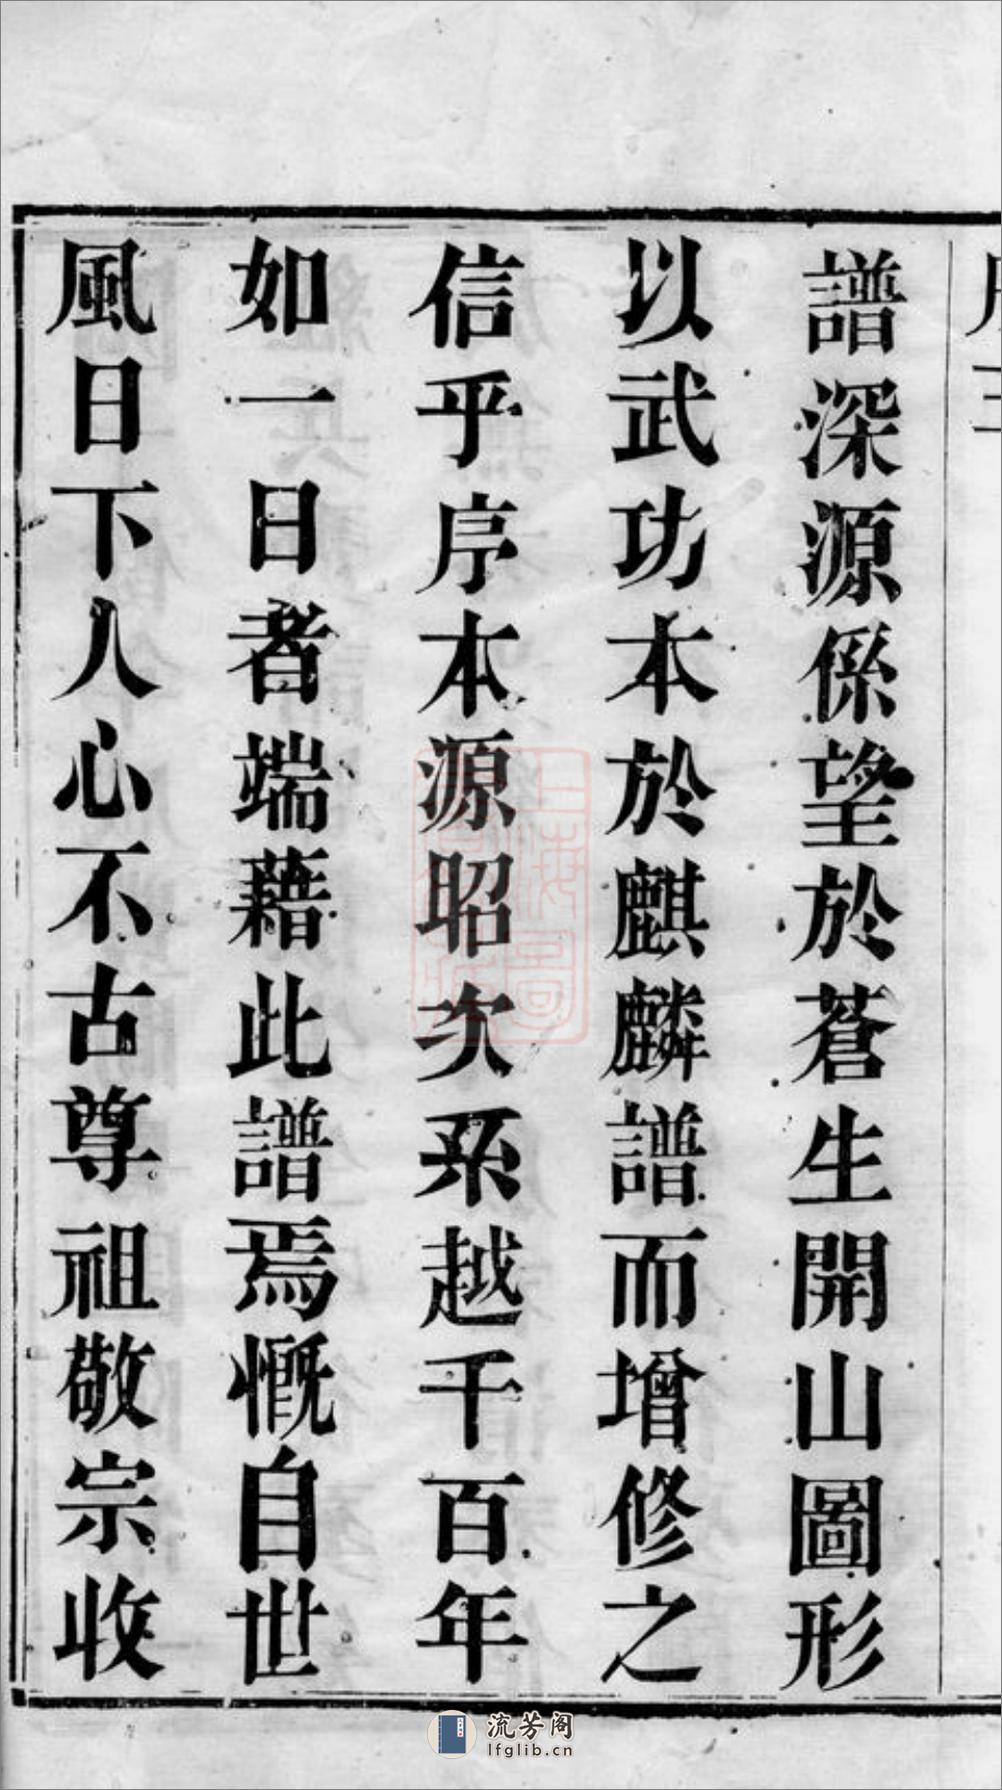 譜深源係望於蒼生開山圖形
以武功本於麒麟譜而增修之
信乎序本源昭次系越千百年
如一日者端藉此譜焉慨自世
風日下人心不古尊祖敬宗收
流芳阁
lfglib.cn